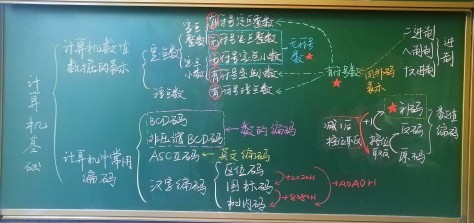 计算机基础
计算机数值
数据的表示
定点数
定点
整数
有符号定点整数
无符号定点整数
定点
小数
无符号定点小数
有符号定点小数
浮点数
有符号浮点数
无符号
数
有符号数
用补码
表示
二进制
八进制
十六进制
进制
计算机中常用
编码
BCD码
非压缩BCD码
数的编码
ASCⅡ码
英文编码
汉字编码
区位码
国标码
机内码
+2020H
+8080H
+A0A0H
减1后
按位取反
+1
按位
取反
补码
反码
原码
数值
编码